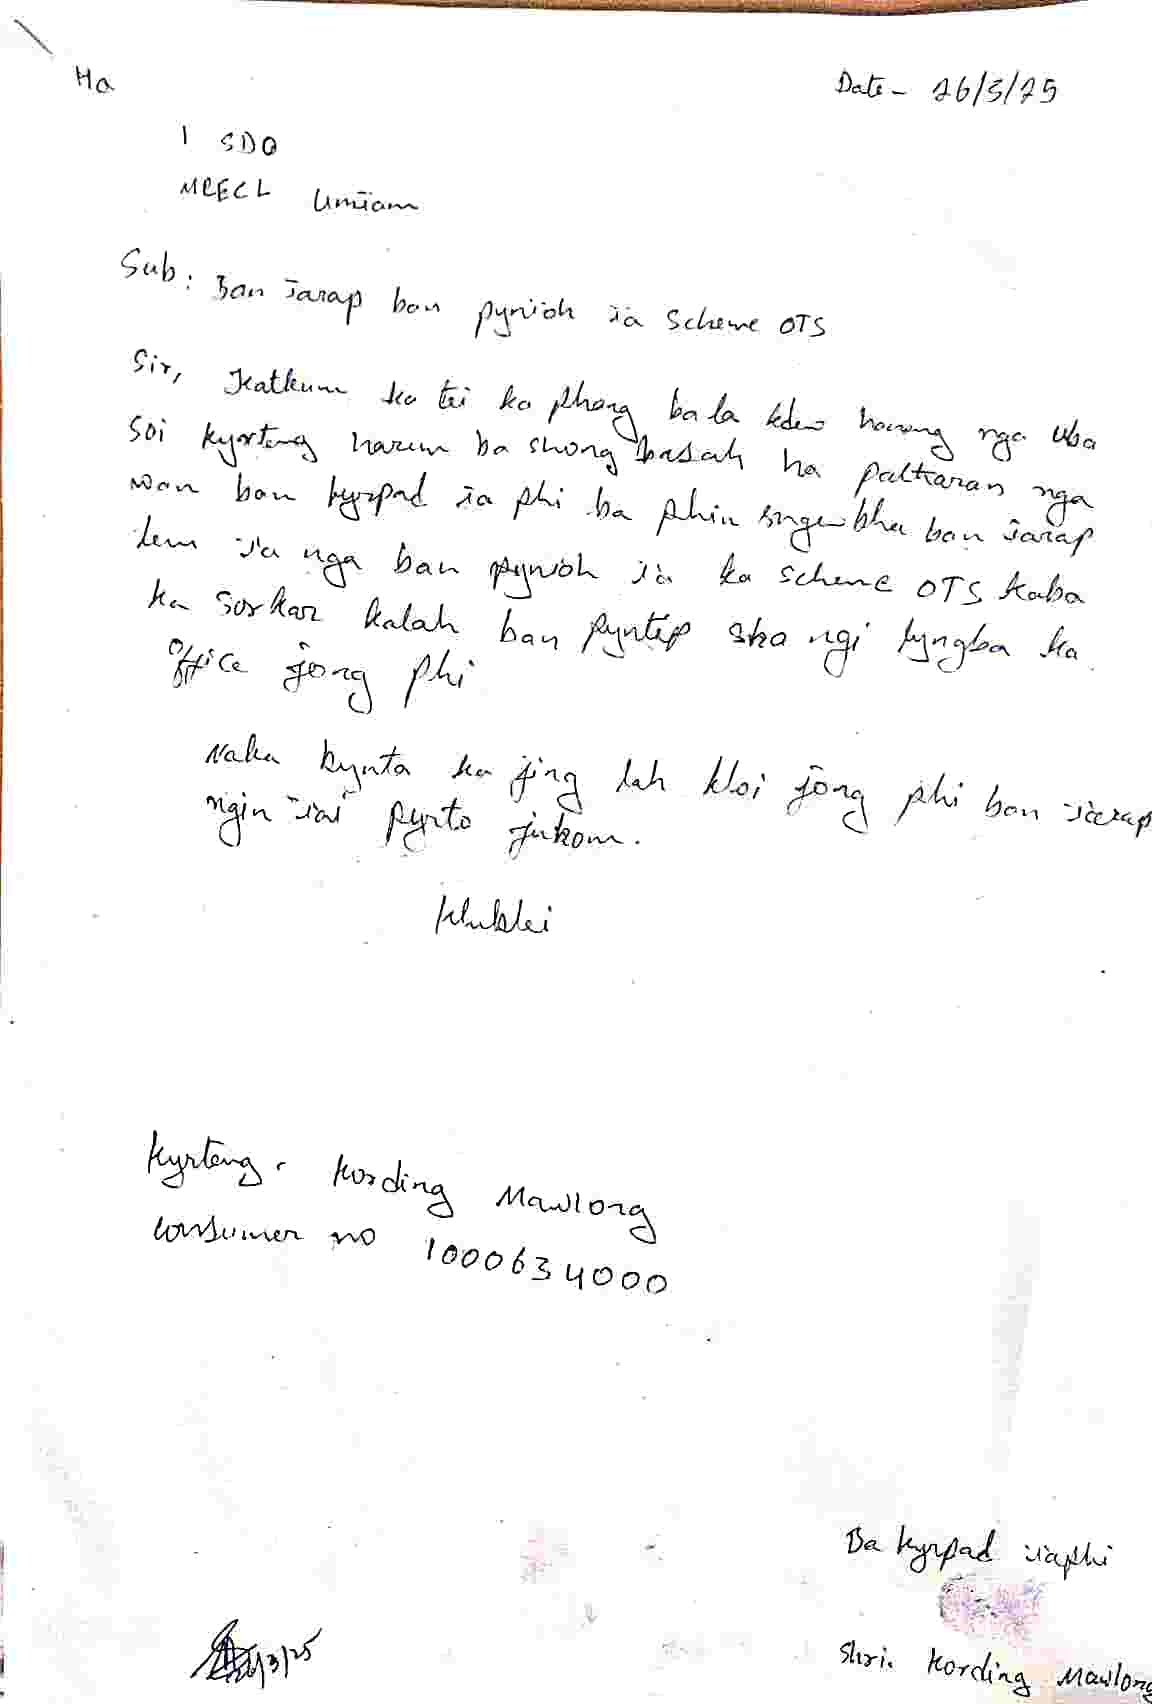 Ha
Date - 26/3/25
I SDO
MePECL Umïam
Sub: Ban ïarap ban pynïoh ïa scheme OTS
Sir, Katkum ka tei ka phang ba la kdew haneng nga uba
soi kyrteng harum ba shong basah ha paltharan nga
wan ban kyrpad ïa phi ba phin sngewbha ban ïarap
lem ïa nga ban pynïoh ïa ka scheme OTS kaba
ka sorkar kalah ban pyntip sha ngi lyngba ka
office jong phi
Naka bynta ka jing lah kloi jong phi ban ïarap
ngin ïai pyrto jukom.
Khublei
Kyrteng - Kording Mawlong
Consumer no 1000634000
Ba kyrpad ïaphi
/3/25
Shri. Kording Mawlong